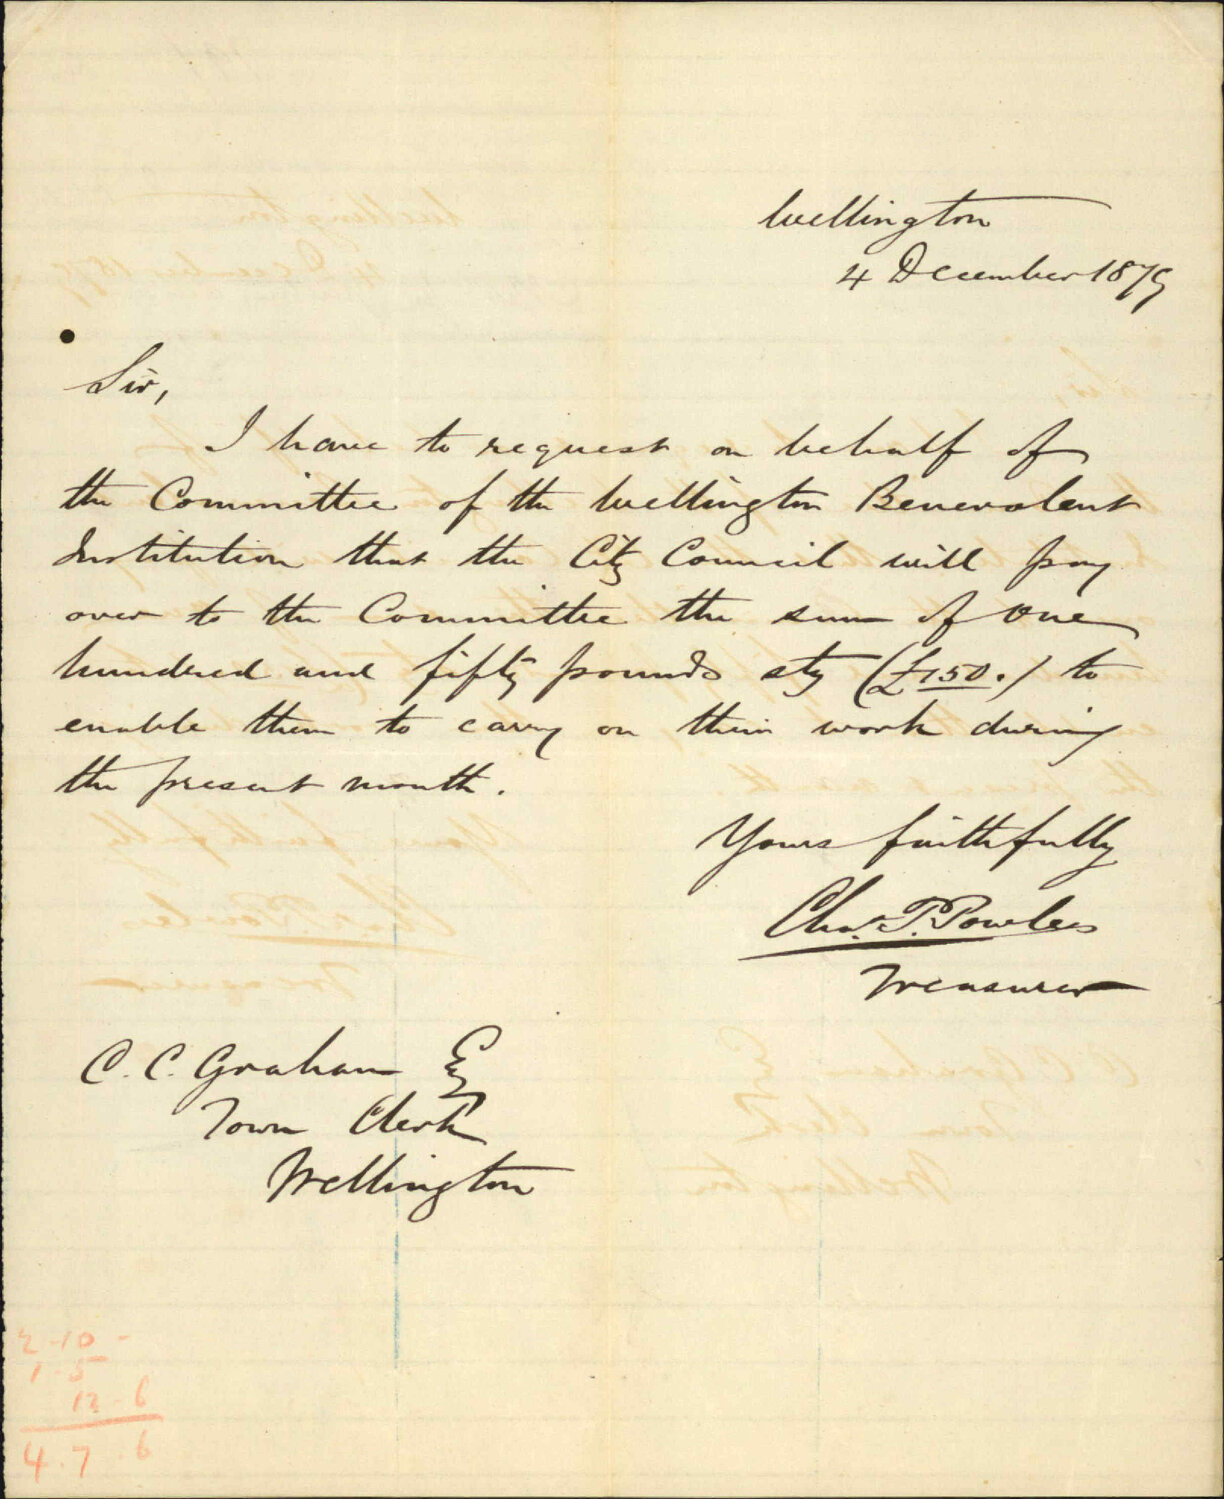 Wellington
4 December 1879
Sir,
I have to request on behalf of
the Committee of the Wellington Benevolent
Institution that the City Council will pay
over to the Committee the sum of one
hundred and fifty pounds stg (£150.) to
enable them to carry on their work during
the present month.
Yours faithfully
Chas. P. Powles
Treasurer
C. C. Graham Esq
Town Clerk
Wellington
2-10-
1-5
12-6
4.7.6